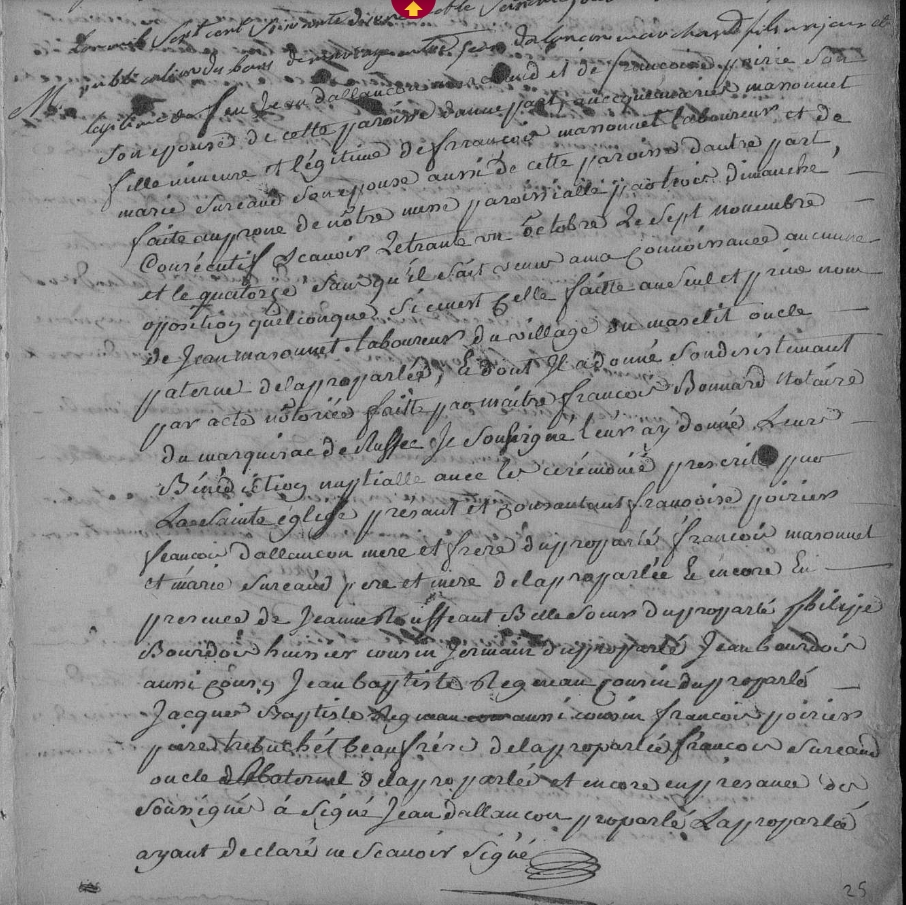 mil sept cent soixante dix
publication des bans de mariage entre Jean dalançon marchand fils majeur et
légitime de feu Jean dallancon marchand et de francoise poirier son
son epouse de cette paroisse d'une part, avecq marie masonnet
fille mineure et légitime de françois massonnet laboureur et de
marie Sureaud son epouse aussi de cette paroisse d'autre part,
faite au prone de nôtre messe paroissialle par trois dimanche
Consécutif Scavoir Le trante un octobre Le Sept novembre
et le quatorze Sans qu'il Soit venu a ma Connoissance aucune
oposition quelconque, Si cenest Celle faitte au Seul et privé nom
de Jean masonnet laboureur du village du oncle
paternel de la proparlée, Et dont Il a donné Son desistemant
par acte nôtoriée faitte par maitre francois Bonnard Notaire
du marquisac de Ruffec Je Soussigné leur ay donné Leurs
Bénédiction nuptialle avec les cérémonie prescrit par
La Sainte église présant et Consantant fransoise poirier
francois dallancon mere et frere du proparlé françois masonnet
et marie Sureaud pere et mere de la proparlée Et encore En
presence de Jeanne Rouffeant Belle Soeur du proparlé philipe
Bourdois huissier cousin Jermain du proparlé Jean bourdois
aussi Cousin Jean baptiste Regneau Cousin du proparlé
Jacques Baptiste Regneau aussi cousin francois poirier
pierre trebuchét beaufrére de la proparlée françois Sureaud
oncle Maternel de la proparlée et encore en présance des
Soussignés á Signé Jean dallancon proparlé La proparlée
ayant declaré ne Scavoir Signé
25